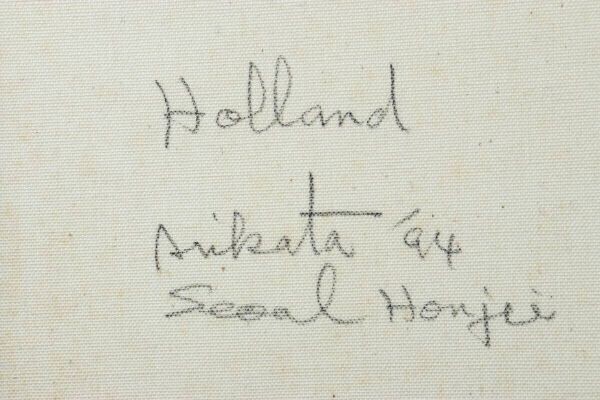 Holland
Arikata '94
Seoal Honjei